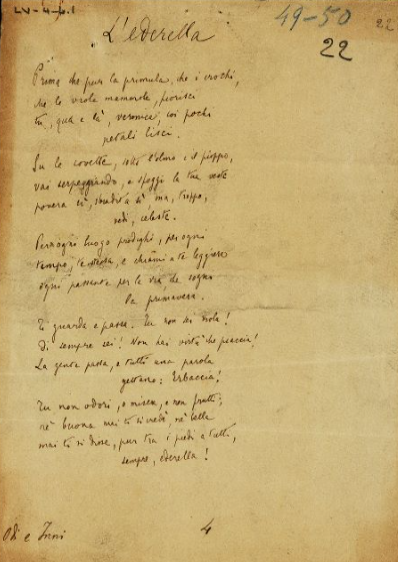 LV-4-6.1
49-50
22
22
"L'ederella"
Prima che pur la primula, che i crochi,
che le viola mammole, fiorisci
tu, qua e là, veronica, coi pochi
petali lisci.
Su le covette, sotto l'olmo e il pioppo,
vai serpeggiando, e sfoggi la tua veste
povera sì, sbiadita sì, ma, troppo,
vedi, celeste.
Per ogni luogo prodighi, per ogni
tempo, te stessa, e chiami a te leggiera
ogni passante per la via, che sogna
la primavera.
Ti guarda e passa. Tu non sei viola!
Di sempre sei! Non hai virtù che piaccia!
La gente passa, e tutti una parola
gettano: Erbaccia!
Tu non odori, o misera, e non frutti;
nè buona mai ti si credè, nè bella
mai ti si disse, pur tra i piedi a tutti,
sempre, ederella!
Odi e Inni
4